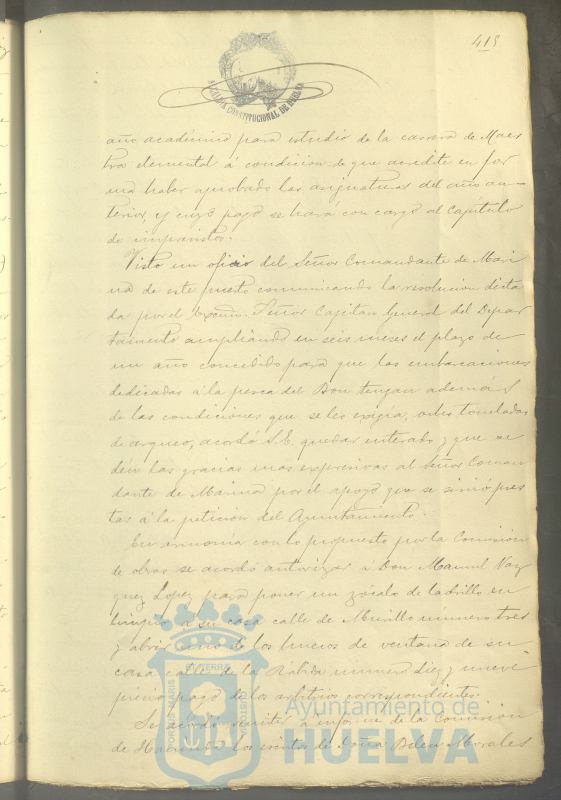 415
ALCALDIA CONSTITUCIONAL DE HUELVA
año académico para estudio de la carrera de Maes
tra elemental á condicion de que acredite en for
ma haber aprobado las asignaturas del año an-
terior, y cuyo pago se hará con cargo al Capitulo
de imprevistos.
Visto un oficio del Señor Comandante de Mari
na de este puerto comunicando la resolucion dicta
da por el Excmo. Señor Capitan General del Depar
tamento ampliando en seis meses el plazo de
un año concedido para que las embarcaciones
dedicadas á la pesca del Bou tengan ademas
de las condiciones que se les exigia, ocho toneladas
de arqueo, acordó S.E. quedar enterado y que se
den las gracias mas expresivas al Señor Coman
dante de Marina por el apoyo que se sirvió pres
tar á la peticion del Ayuntamiento.
En armonía con lo propuesto por la Comision
de obras se acordó autorizar a Don Manuel Vaz
quez Lopez para poner un zócalo de ladrillo en
á su casa calle de Murillo número tres
y abrir uno de los huecos de ventana de su
casa calle de la Rábida número diez y nueve
previo pago de los arbitrios correspondientes.
Se acordó remitir á informe de la Comision
de Hacienda los escritos de Doña Belen Morales
PORTUS MARIS
ET TERRAE
CUSTODIA
Ayuntamiento de
HUELVA